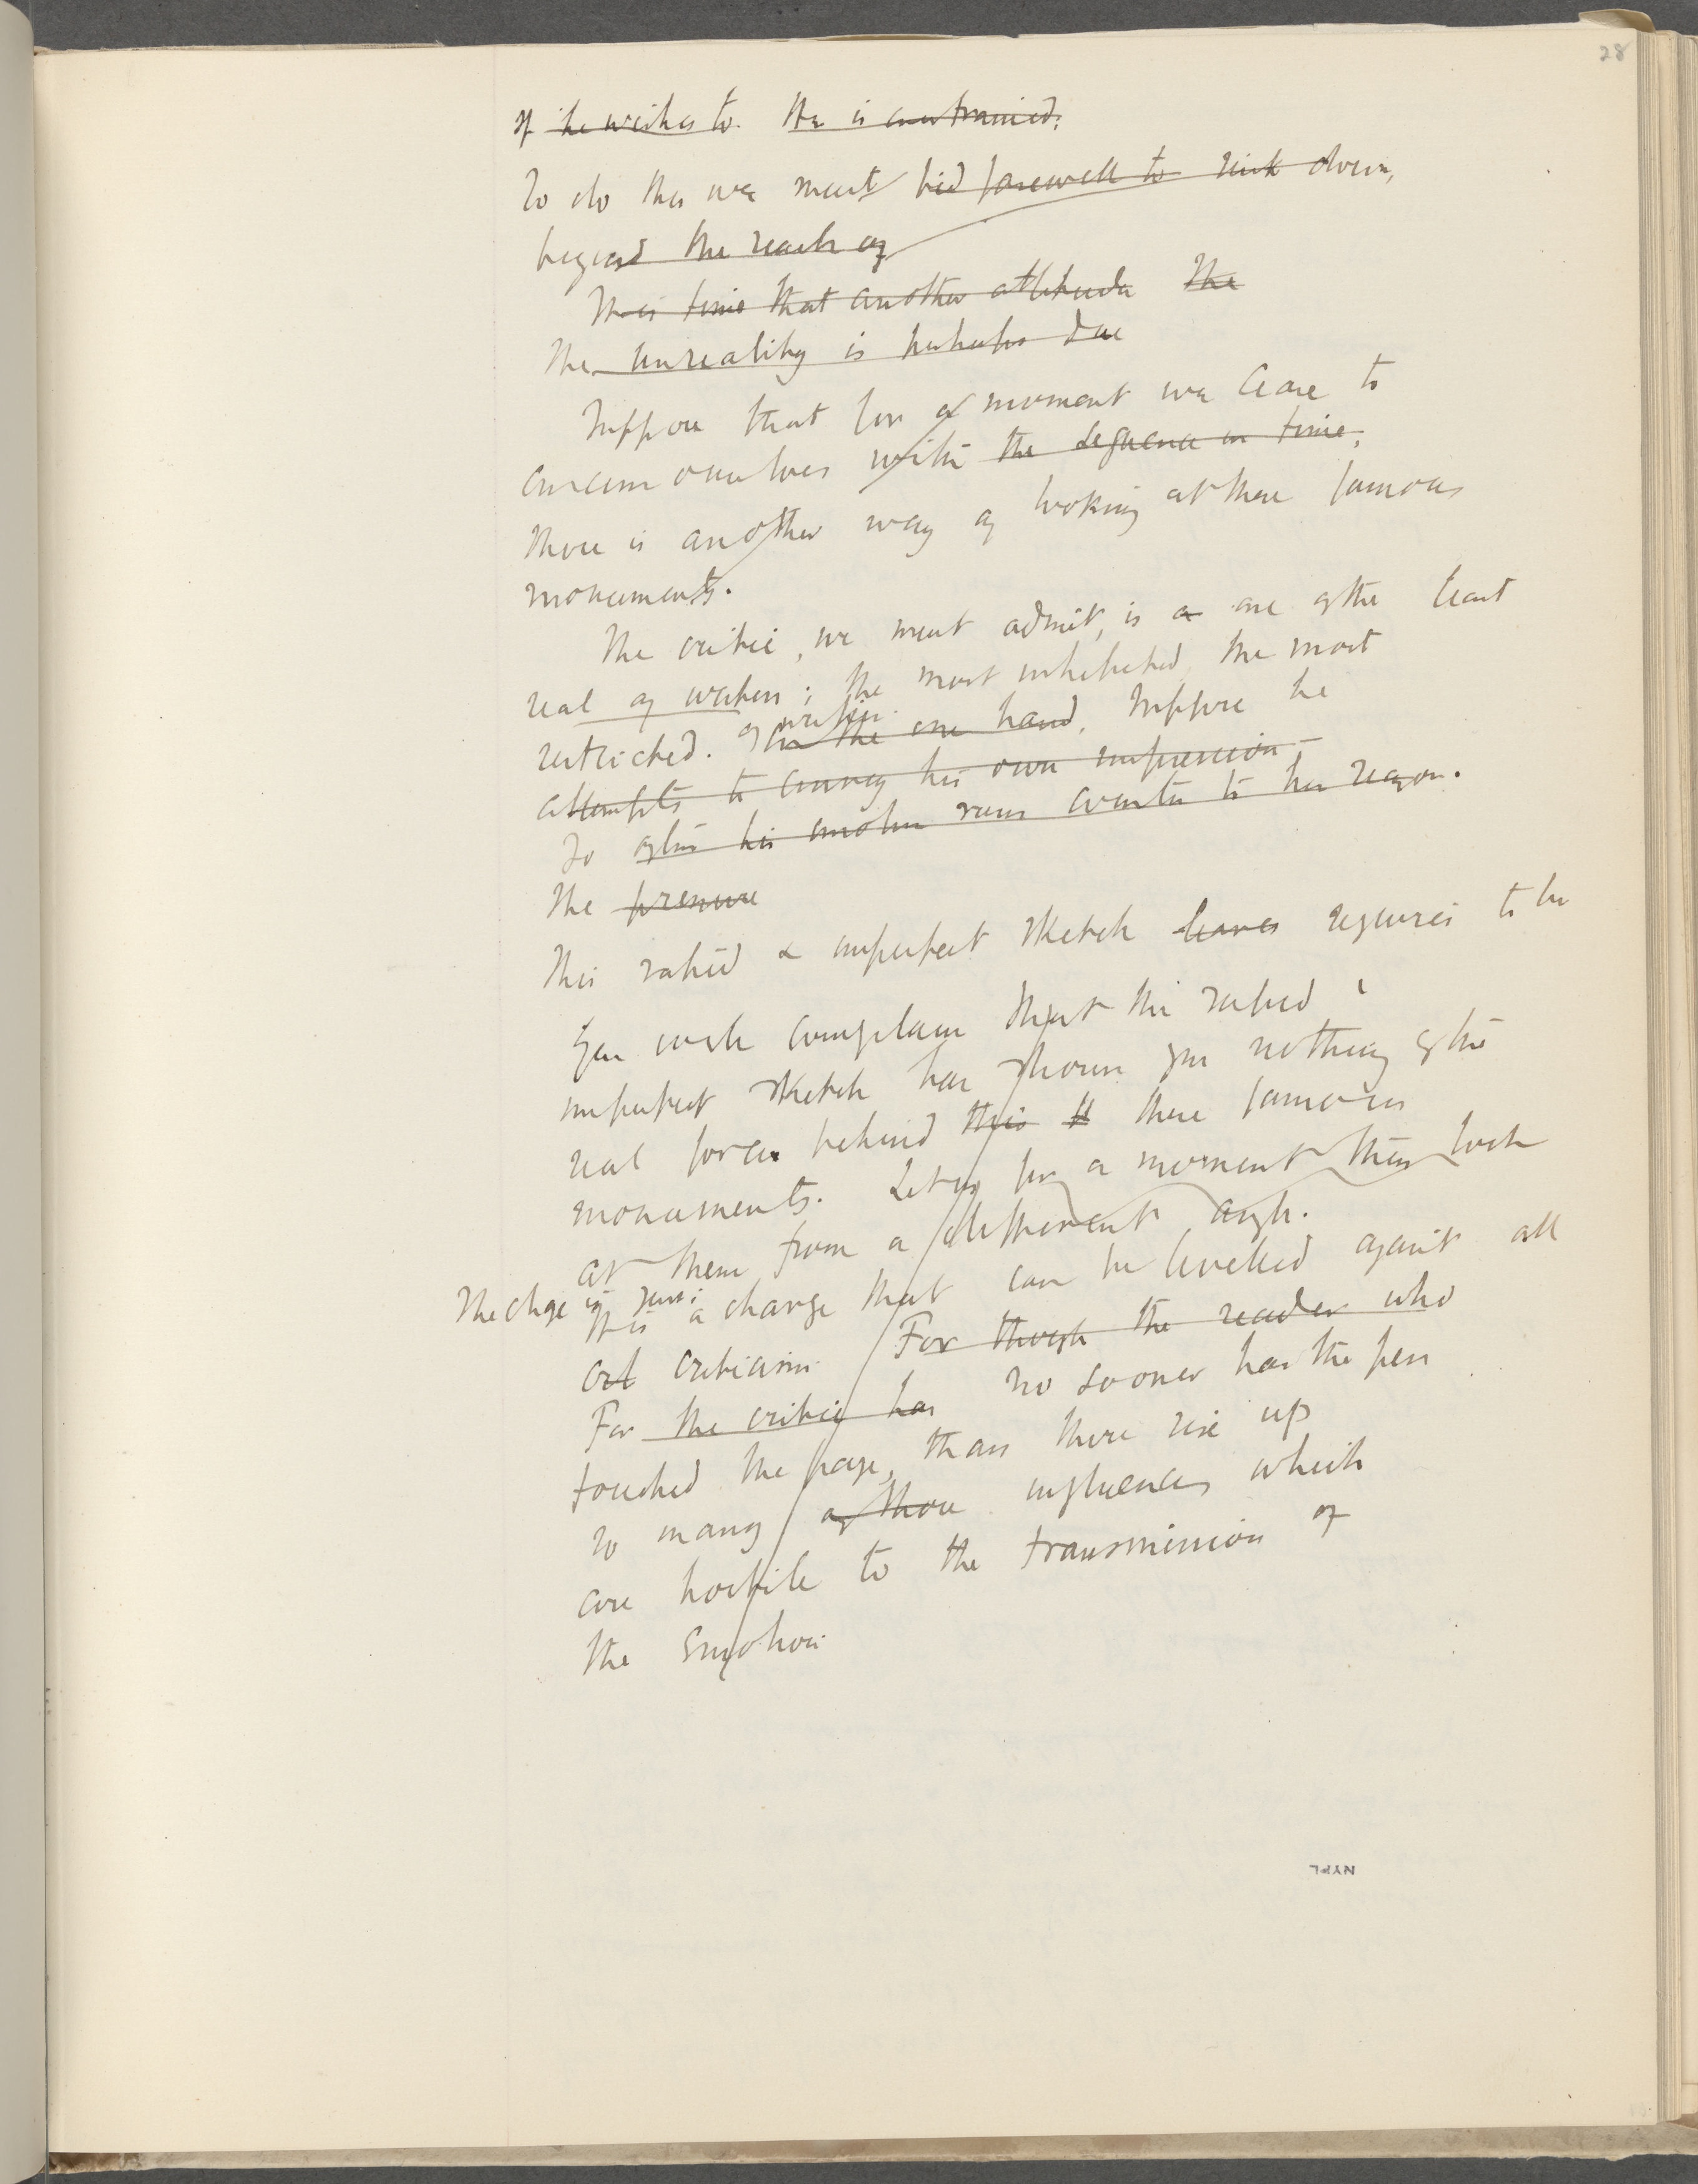 28
If he wishes to. He is constrained;
To do this we must bid farewell to sink down,
beyond the reach of
It is time that another attitude The
The unreality is perhaps due
Suppose that for a moment we cease to
concern ourselves with the sequence in time;
there is another way of looking at these famous
monuments.
The critic, we must admit, is a one of the least
real of writers; the most inhibited, the most
of writers.
restricted. On the one hand, Suppose he
attempts to convey his own impression
To his emotion runs counter to his reason.
The pressure
This rapid & imperfect sketch leaves requires to be
You will complain that this rapid &
imperfect sketch has shown you nothing of the
real force behind this these famous
monuments. Let us for a moment then look
at them from a different angle.
The charge is
It is a charge that can be levelled against all
criticism. For though the reader who
For the critic has no sooner has the pen
touched the page, than there rise up
so many of those influences which
are hostile to the transmission of
the emotion
NYPL